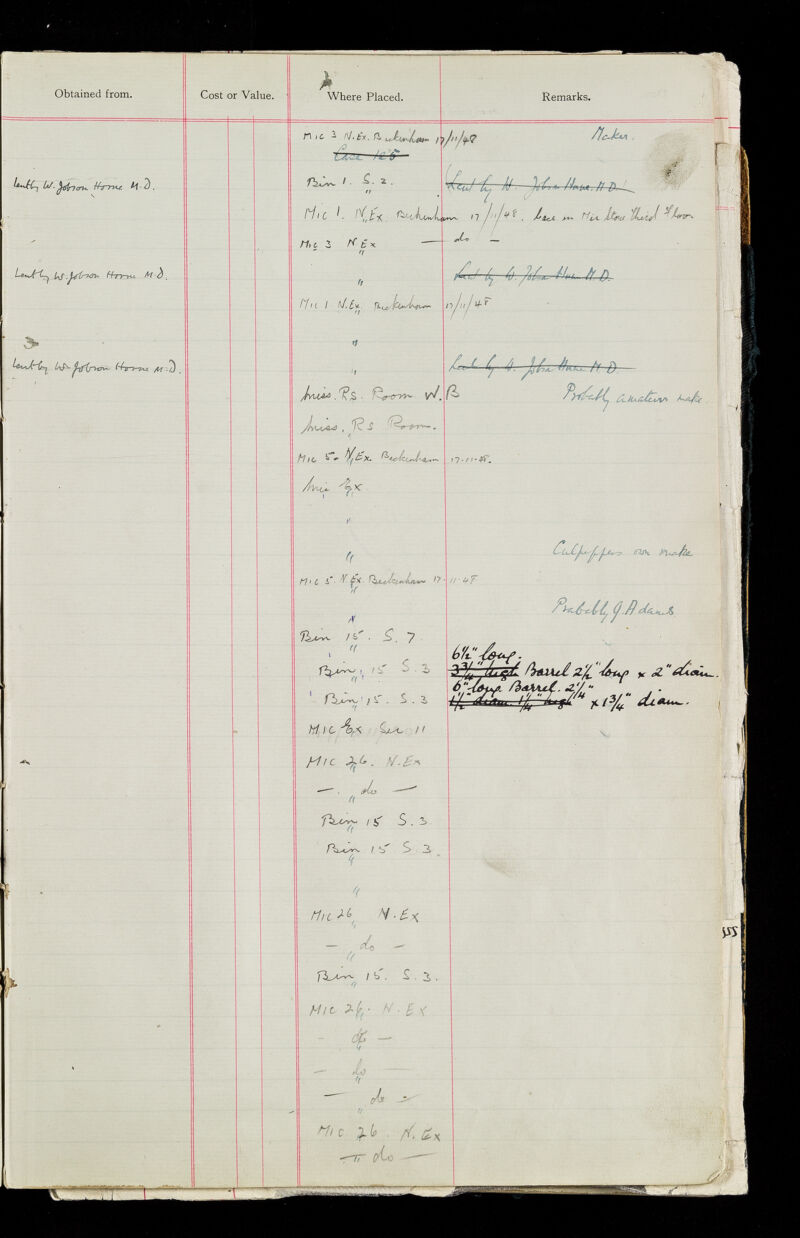 Obtained from. Cost or Value. Where Placed. Remarks.
Mic 3 N.Ex. Beckenham 17/11/48 Maker.
Case 126
Lent by W. Jobson Horne M.D. Bin 1. S. 2. Lent by W. Jobson Horne. M.D.
Mic 1. N.Ex. Beckenham 17/11/48. base in Mic Store Third Floor
Mic 3 N Ex — do —
Lent by W. Jobson Horne M D. " Lent by W. Jobson Horne M.D.
Mic 1 N.Ex. Beckenham 17/11/48
"
Lent by W. Jobson Horne M.D. " Lent by W. Jobson Horne M D
Miss. Rs. Room W.B Probably amateur make.
Miss. Rs Room.
Mic 5. N.Ex. Beckenham 17-11-48.
Mic Ex
"
" Culpeppers own make
Mic 5. N.Ex. Beckenham 17-11-48
" Probably G. Adams
Bin 15. S. 7.
6½" long.
Bin 15 S. 3 3¾" high Barrel 2½" long x 2" diam.
6" long Barrel. 2¼"
Bin 15. S. 3 1½" diam 1¼" high x 1¾" diam.
Mic Ex Ser 11
Mic 26. N.Ex
— do —
Bin 15 S. 3.
Bin 15 S. 3.
"
Mic 26 N.Ex
— do —
Bin 15. S. 3.
Mic 26. N.Ex
— do —
— do —
— do —
Mic 26. N.Ex
— do —